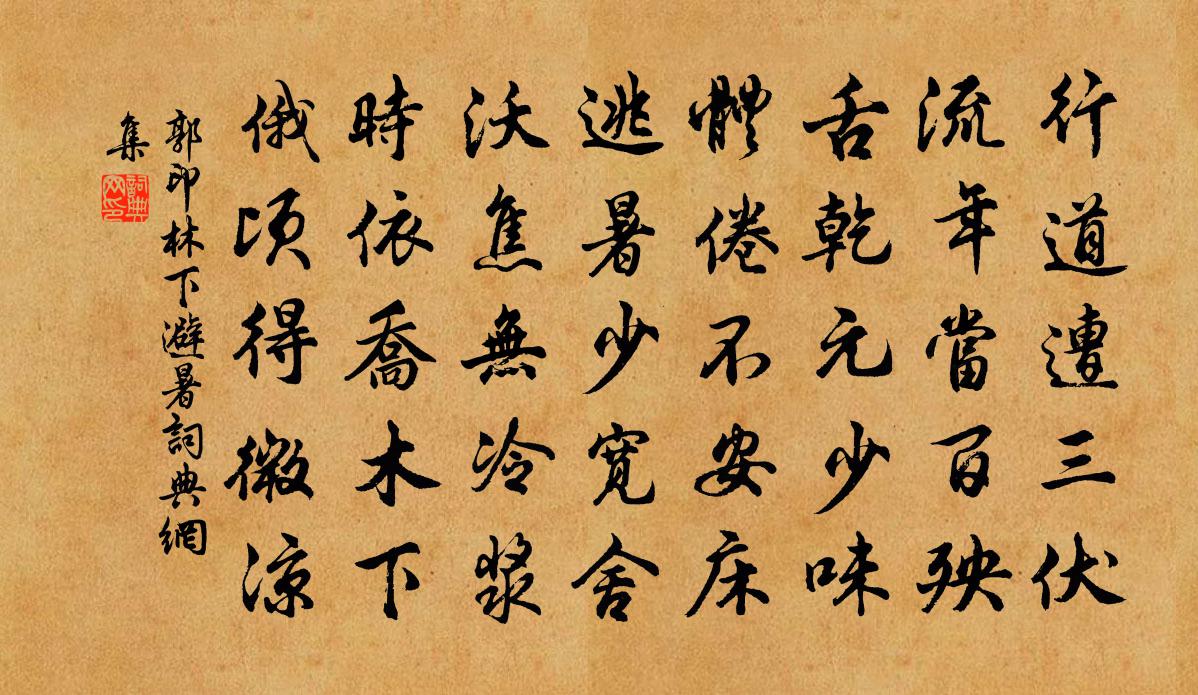 行道遭三伏
流年當百殃
舌乾元少味
體倦不安床
逃暑少寬舍
沃焦無冷漿
時依喬木下
俄頃得微涼
郭印林下避暑詞典網
集
詞典
网印